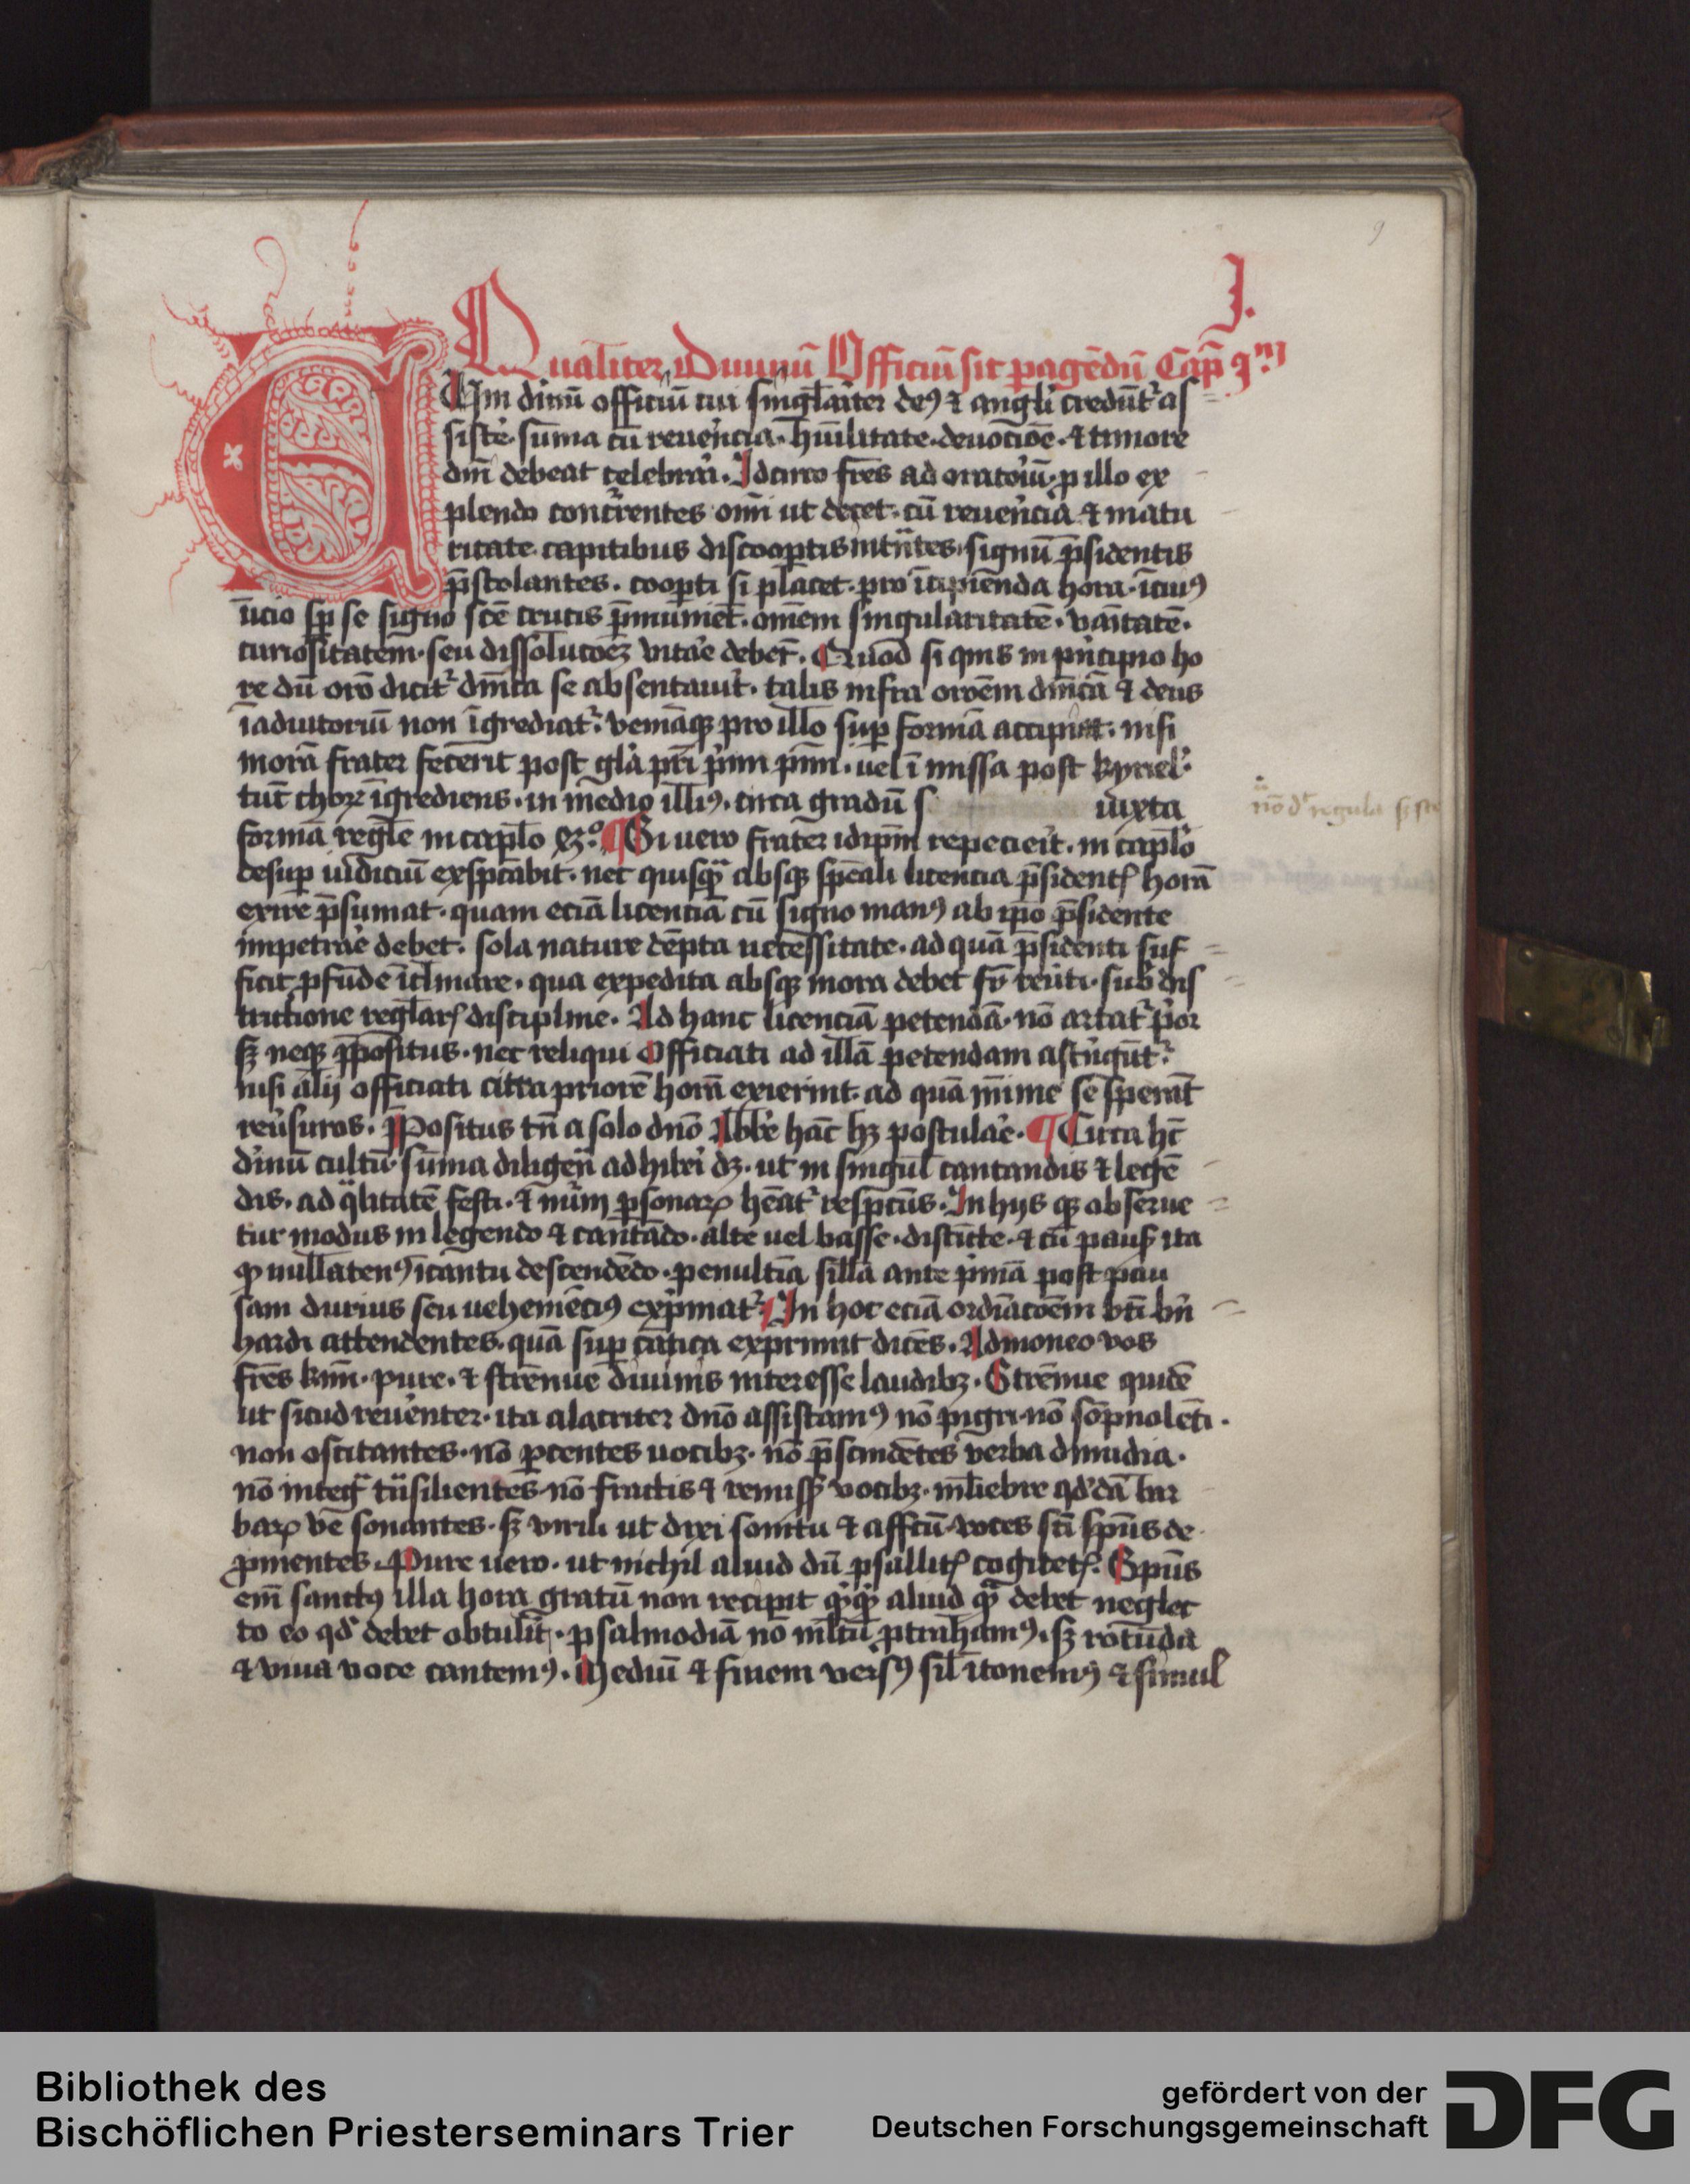 9
J.
Qualit̄er Diuinū Officiū sit ꝑagēdū Cap̄ ꝫᵐ
CUm diuinū officiū cui singl̄ariter deꝰ ⁊ angli credūt᷑ as
sistē. sūma cū reuerēcia. hūilitate. deuocioē. ⁊ timore
dm̄ debeat celebrari. Idcirco fr̄es ad oratoiū. ꝓ illo ex
plendo concrrentes om̄i ut decet. cū reuerēcia ⁊ matu
ritate capitibus discoop̄tis intrātes. signū p̄sidentis
p̄stolantes. coop̄ti si placet. pro īcipienda hora. icuiꝰ
īicio sp̄ se signo sc̄e crucis p̄muniet. omēm singularitatē. vaītatē.
curiositatem. seu dissolucoēꝫ vitare debet. Quod si quis in prīcipio ho
re dū orō dicit᷑ dm̄ica se absentauit. talis infra oroēm dm̄icā ⁊ deus
īadiutoriū non īgrediat᷑. veniāqꝫ pro illo sup̄ formā accipiet. nisi
morā frater fecerit post glā pr̄i prim pm̄. uel ī missa post kyriel᷑.
tūc choꝝ īgrediens. in medio illiꝰ. circa gradū s iuxta
formā regl̄e in capl̄o Si uero frater idip̄m repecieit. in capl̄o
desup̄ iudiciū exsp̄ctabit. nec quisqͣ absqꝫ sp̄ciali licencia p̄sident̄ horā
exire p̄sumat. quam eciā licenciā cū signo manꝰ ab ip̄o p̄sidente
impetrāe debet. sola nature dēpta necessitate. ad quā p̄sidenti suf
ficit ꝓfūde īclinare. qua expedita absqꝫ mora debet reūti. sub dis
trictione reglar̄ discipline. Ad hanc licenciā petendā. nō artat᷑ p̄or
sꝫ neqꝫ p̄positus. nec reliqui officiati ad illā petendam astrīgūt᷑.
nisi alij officiati citra priorē horā exierint. ad quā mīime se sperāt
reūsuros. Ppositus tn̄ a solo dnō Abbe hāc hꝫ postulāe. ¶ Circa hc̄
diuinū cultū. sūma diligen̄ adhiberi dꝫ. ut in singul̄ cantandis ⁊ legē
dis. ad q̄litatē festi. ⁊ nūm ꝑsonaꝝ hēat᷑ resp̄ctus. In hijs qꝫ obserue
tur modus in legendo ⁊ cantādo. alte uel basse. distīcte. ⁊ cū paus̄ ita
qꝫ nullatenꝰ ī cantu descendēdo. penultīa sill̄a ante p̄mā post pau
sam durius seu uehemēciꝰ exp̄mat᷑. In hoc eciā ordīacoēm bt̄i bn̄
hardi attendentes. quā sup̄ cātica exprimit dicēs. Admoneo vos
fr̄es kmī. pure. ⁊ strēnue diuinis interesse laudibꝫ. Strēnue quidē
ut sicud reuēnter. ita alacriter dnō assistamꝰ nō pigri. nō sōpnolēti.
non oscitantes. nō ꝑcentes uocibꝫ. nō p̄scindētes verba dimidia.
nō integͣ tͣnsilientes. nō fractis ⁊ remiss̄ vocibꝫ. ml̄iebre qd̓dā bar
baꝝ ve sonantes. sꝫ virili ut dixi sonitu ⁊ affc̄tū. voces sc̄i sp̄us de
ꝓmentes. Pure uero. ut nichil aliud dū psallit̄ cogitet̄. Sp̄us
em̄ sanctꝰ illa hora gratū non recipit qͥcqͥd aliud qͣ debet neglec
to eo qd̓ debet obtulīt. psalmodiā nō ml̄tū ꝓtrahamꝰ. sꝫ rotūda
⁊ viua voce cantemꝰ. Mediū ⁊ finem versꝰ sil̄ ītonemꝰ ⁊ simul
Bibliothek des
Bischöflichen Priesterseminars Trier
gefördert von der
Deutschen Forschungsgemeinschaft
DFG